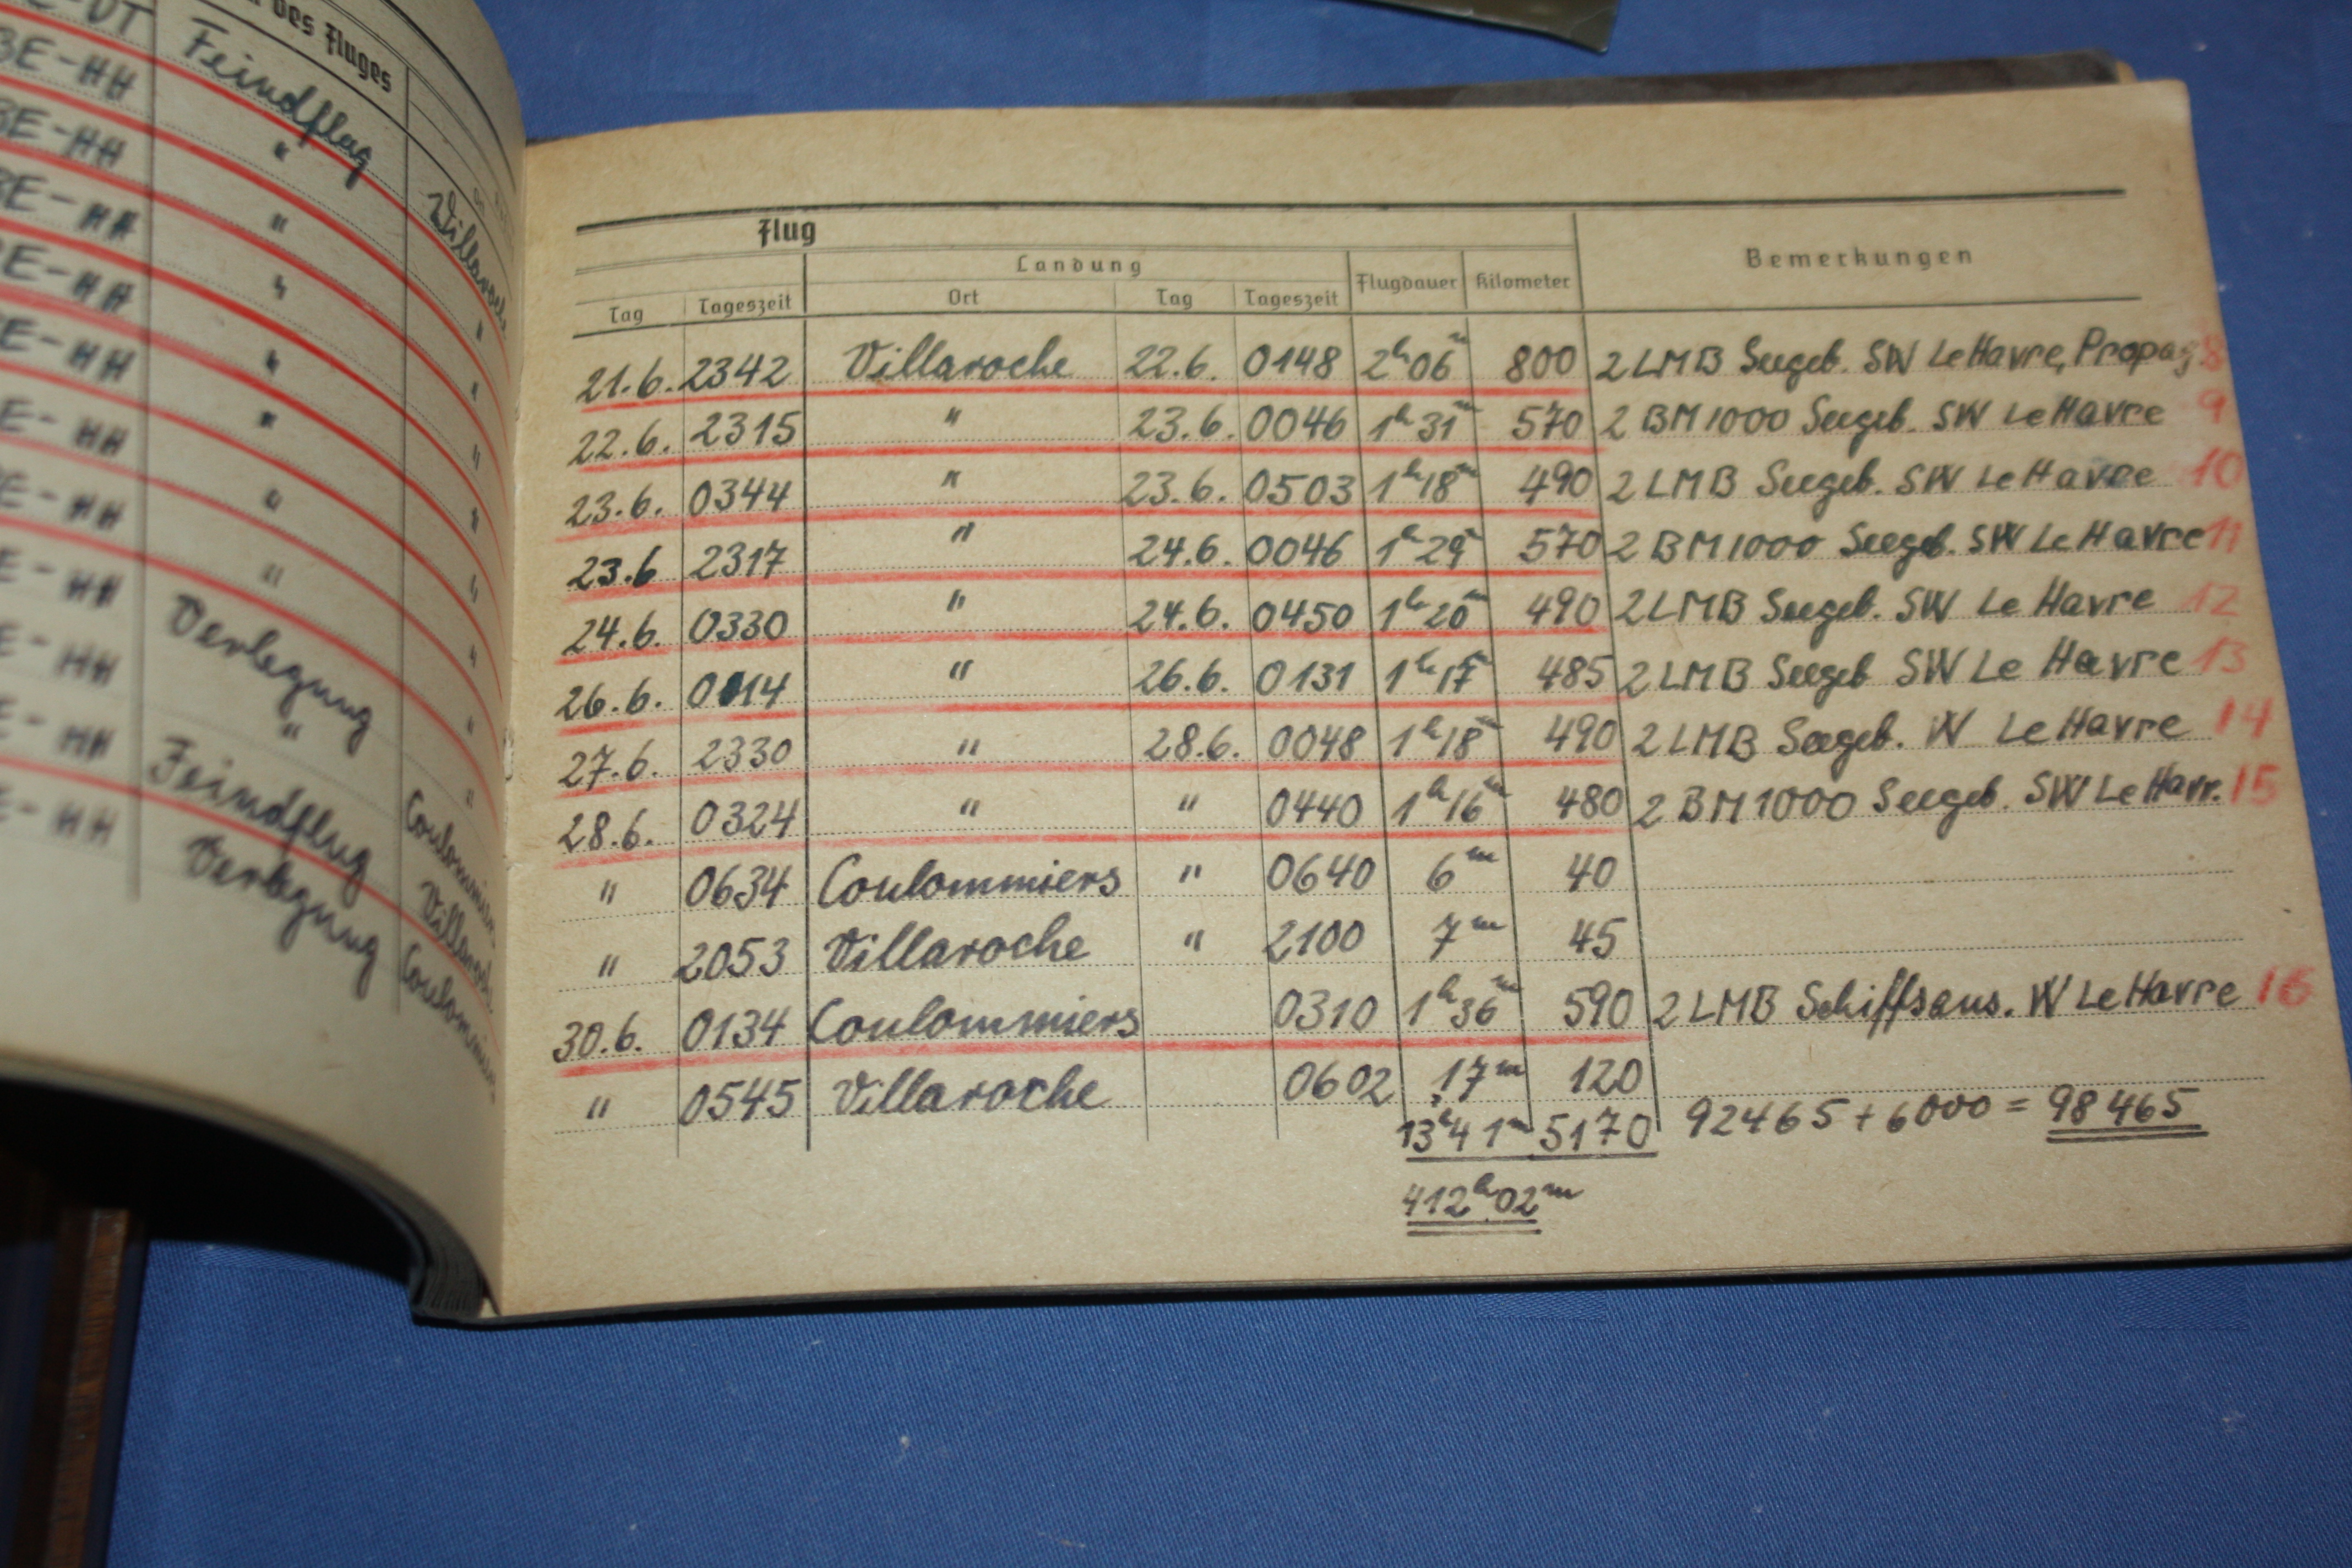 des Fluges
BE-HH Feindflug
BE-HH "
BE-HH "
BE-HH "
E-HH "
E-HH "
E-HH "
E-HH "
E-HH Verlegung
E-HH "
E-HH Feindflug
E-HH Verlegung
Flug
Landung
Bemerkungen
Tag Tageszeit Ort Tag Tageszeit Flugdauer Kilometer
21.6. 2342 Villaroche 22.6. 0148 2h06m 800 2 LMB Seegeb. SW Le Havre, Propag. 8
22.6. 2315 " 23.6. 0046 1h31m 570 2 BM1000 Seegeb. SW Le Havre 9
23.6. 0344 " 23.6. 0503 1h18m 490 2 LMB Seegeb. SW Le Havre 10
23.6 2317 " 24.6. 0046 1h29m 570 2 BM1000 Seegeb. SW Le Havre 11
24.6. 0330 " 24.6. 0450 1h20m 490 2 LMB Seegeb. SW Le Havre 12
26.6. 0014 " 26.6. 0131 1h17m 485 2 LMB Seegeb SW Le Havre 13
27.6. 2330 " 28.6. 0048 1h18m 490 2 LMB Seegeb. W Le Havre 14
28.6. 0324 " " 0440 1h16m 480 2 BM1000 Seegeb. SW Le Havr. 15
" 0634 Coulommiers " 0640 6m 40
" 2053 Villaroche " 2100 7m 45
30.6. 0134 Coulommiers 0310 1h36m 590 2 LMB Schiffsans. W Le Havre 16
" 0545 Villaroche 0602 17m 120
13h41m 5170 92465 + 6000 = 98465
412h02m